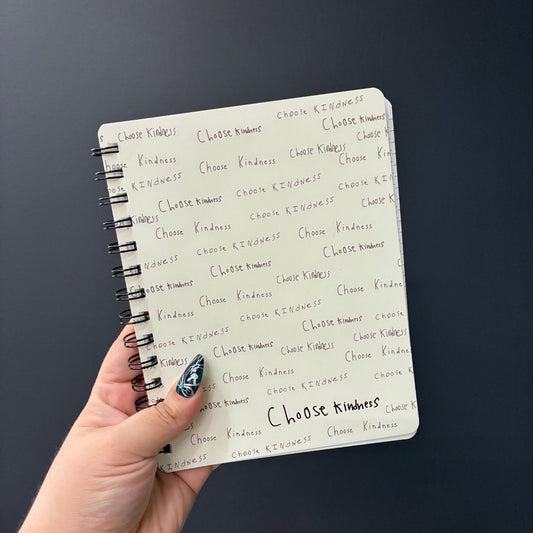 Choose KINDNESS
Choose Kindness
Choose kindness
Choose kindness
Choose Kindness
Choose Kindness
Choose Kindness
Choose K
Choose Ki
Choose KINDNESS
Choose KINDNESS
Choose KIND
Choose kindness
Choose KINDNESS
Choose K
Kindness
Choose Kindness
Choose Kindness
Choose KINDNESS
Choose kindness
KINDNESS
Choose kindness
Choose Kindness
Choose kindness
Choose Kindness
Choose Kindness
Kindness
Choose KINDNESS
Choose kindness
Choose
Choose KINDNESS
Choose kindness
Choose Kindness
Choose Kindness
Kindness
Choose Kindness
Choose KINDNESS
Choose
Choose kindness
Choose kindness
Choose K
Choose Kindness
Choose Kindness
Choose KINDNESS
KINDNESS